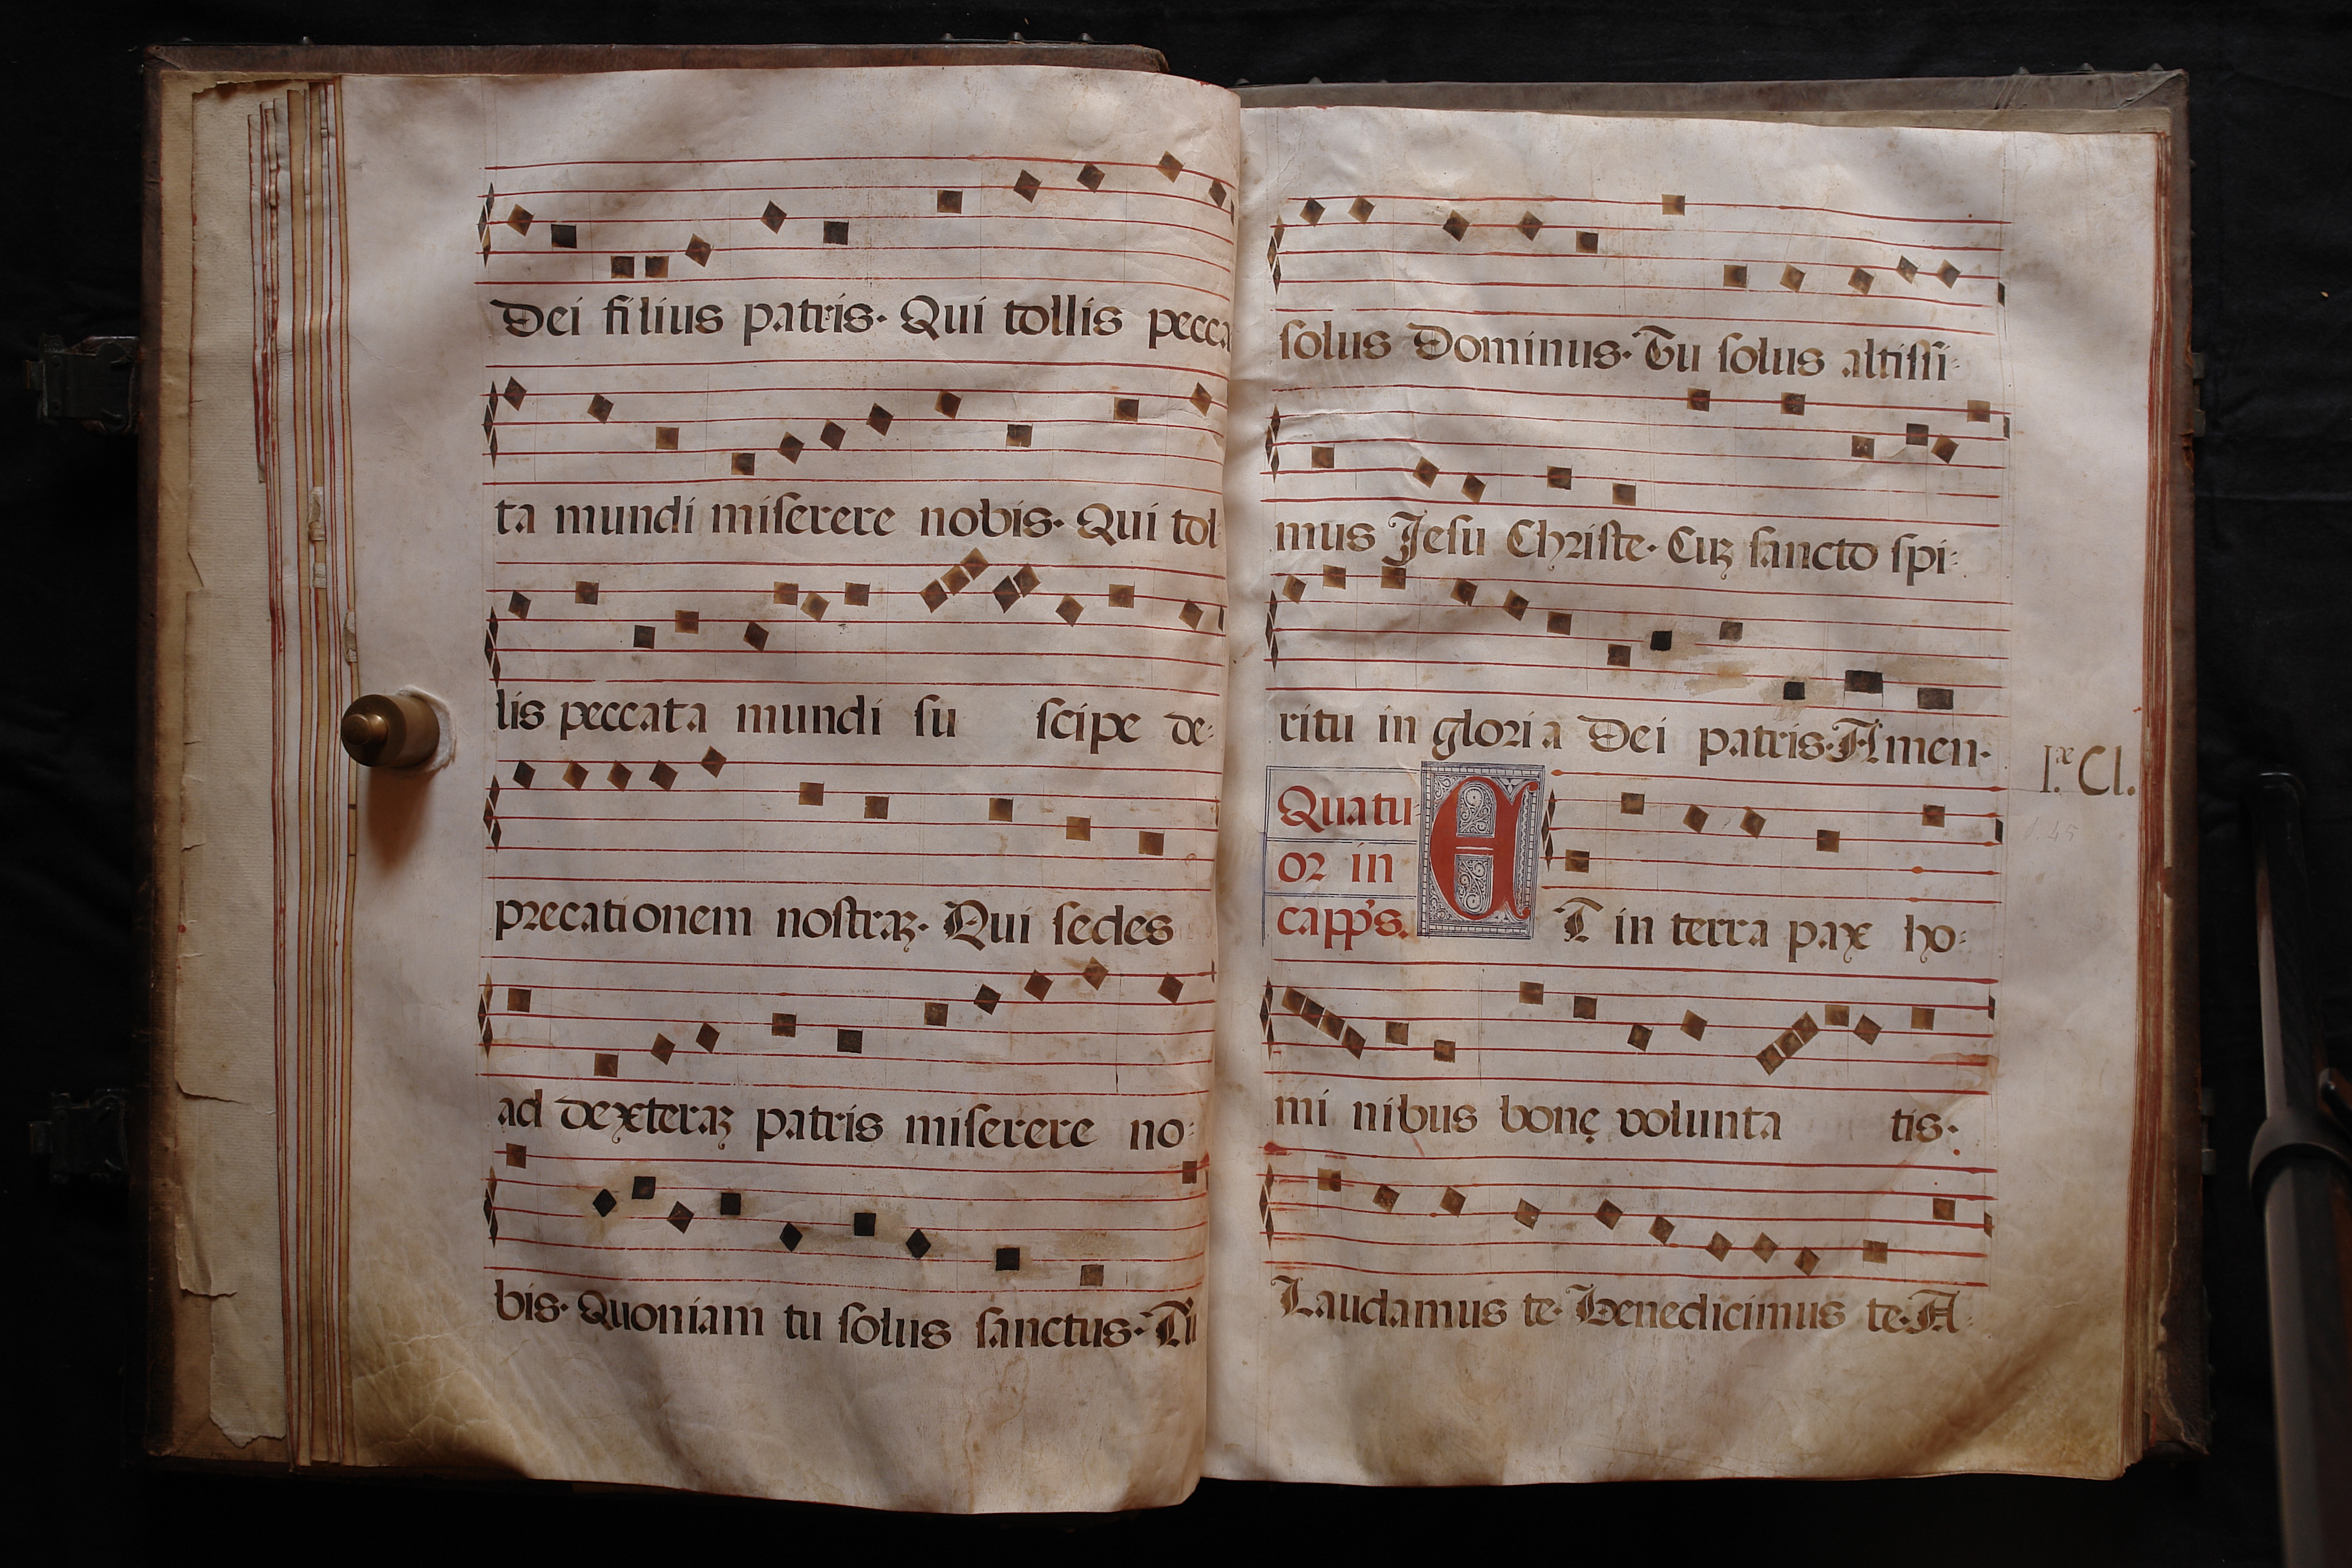 Dei filius patris. Qui tollis pecca
ta mundi miſerere nobis. Qui tol:
lis peccata mundi ſu ſcipe de:
precationem noſtraꝫ. Qui ſedes
ad dexteraꝫ patris miſerere no:
bis. Quoniam tu ſolus ſanctus. Tu
ſolus Dominus. Tu ſolus altiſſi:
mus Jeſu Chriſte. Cuꝫ ſancto ſpi:
ritu in gloria Dei patris. Amen.
I.æ Cl.
Quatu:
or in
capp's.
ET in terra pax ho:
mi nibus bonę volunta tis.
Laudamus te. Benedicimus te. A: